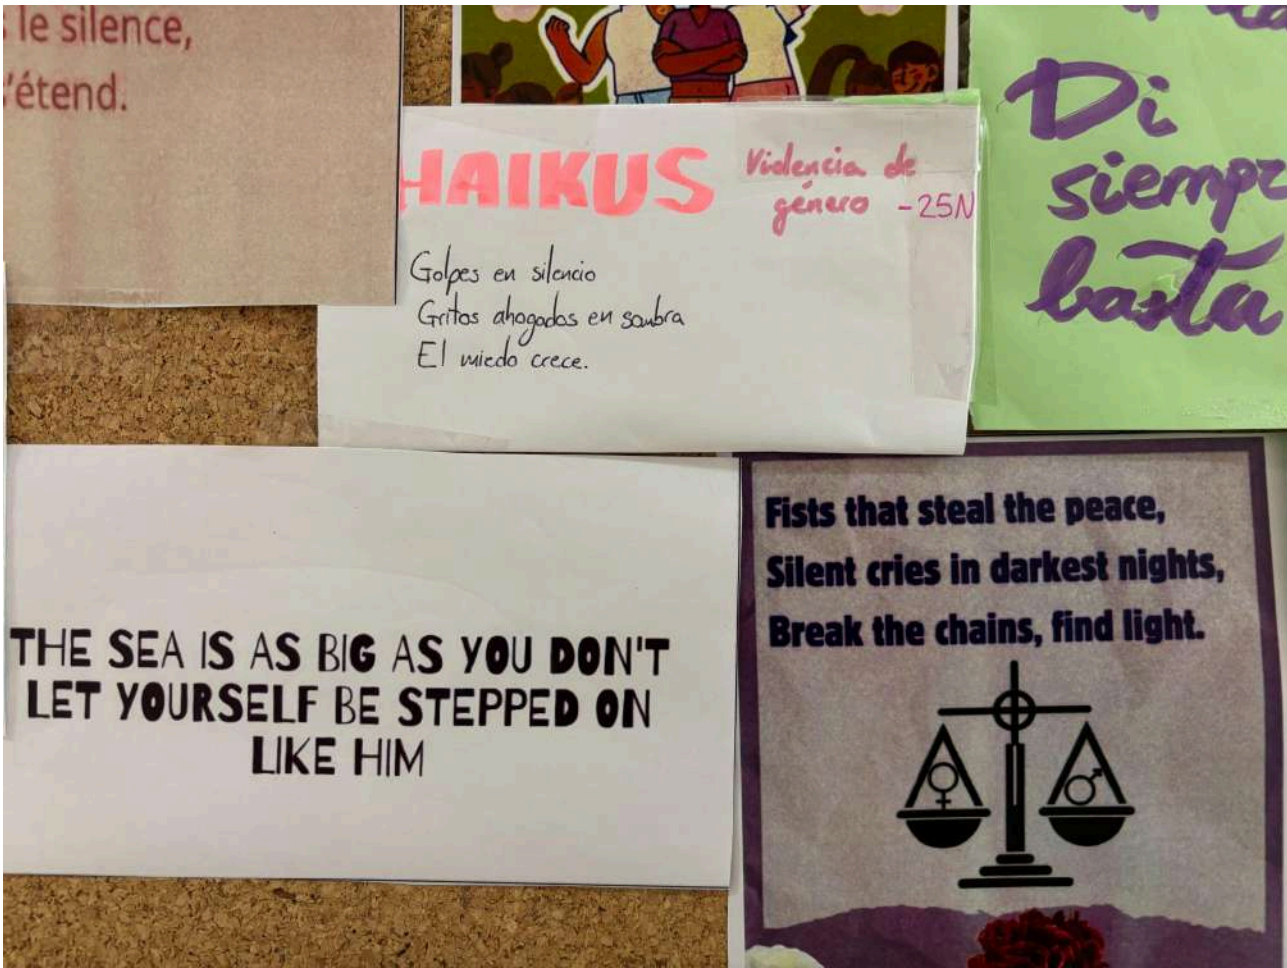 le silence,
'étend.
HAIKUS
Violencia de
género -25N
Golpes en silencio
Gritos ahogados en sombra
El miedo crece.
Di
siempr
basta
THE SEA IS AS BIG AS YOU DON'T
LET YOURSELF BE STEPPED ON
LIKE HIM
Fists that steal the peace,
Silent cries in darkest nights,
Break the chains, find light.